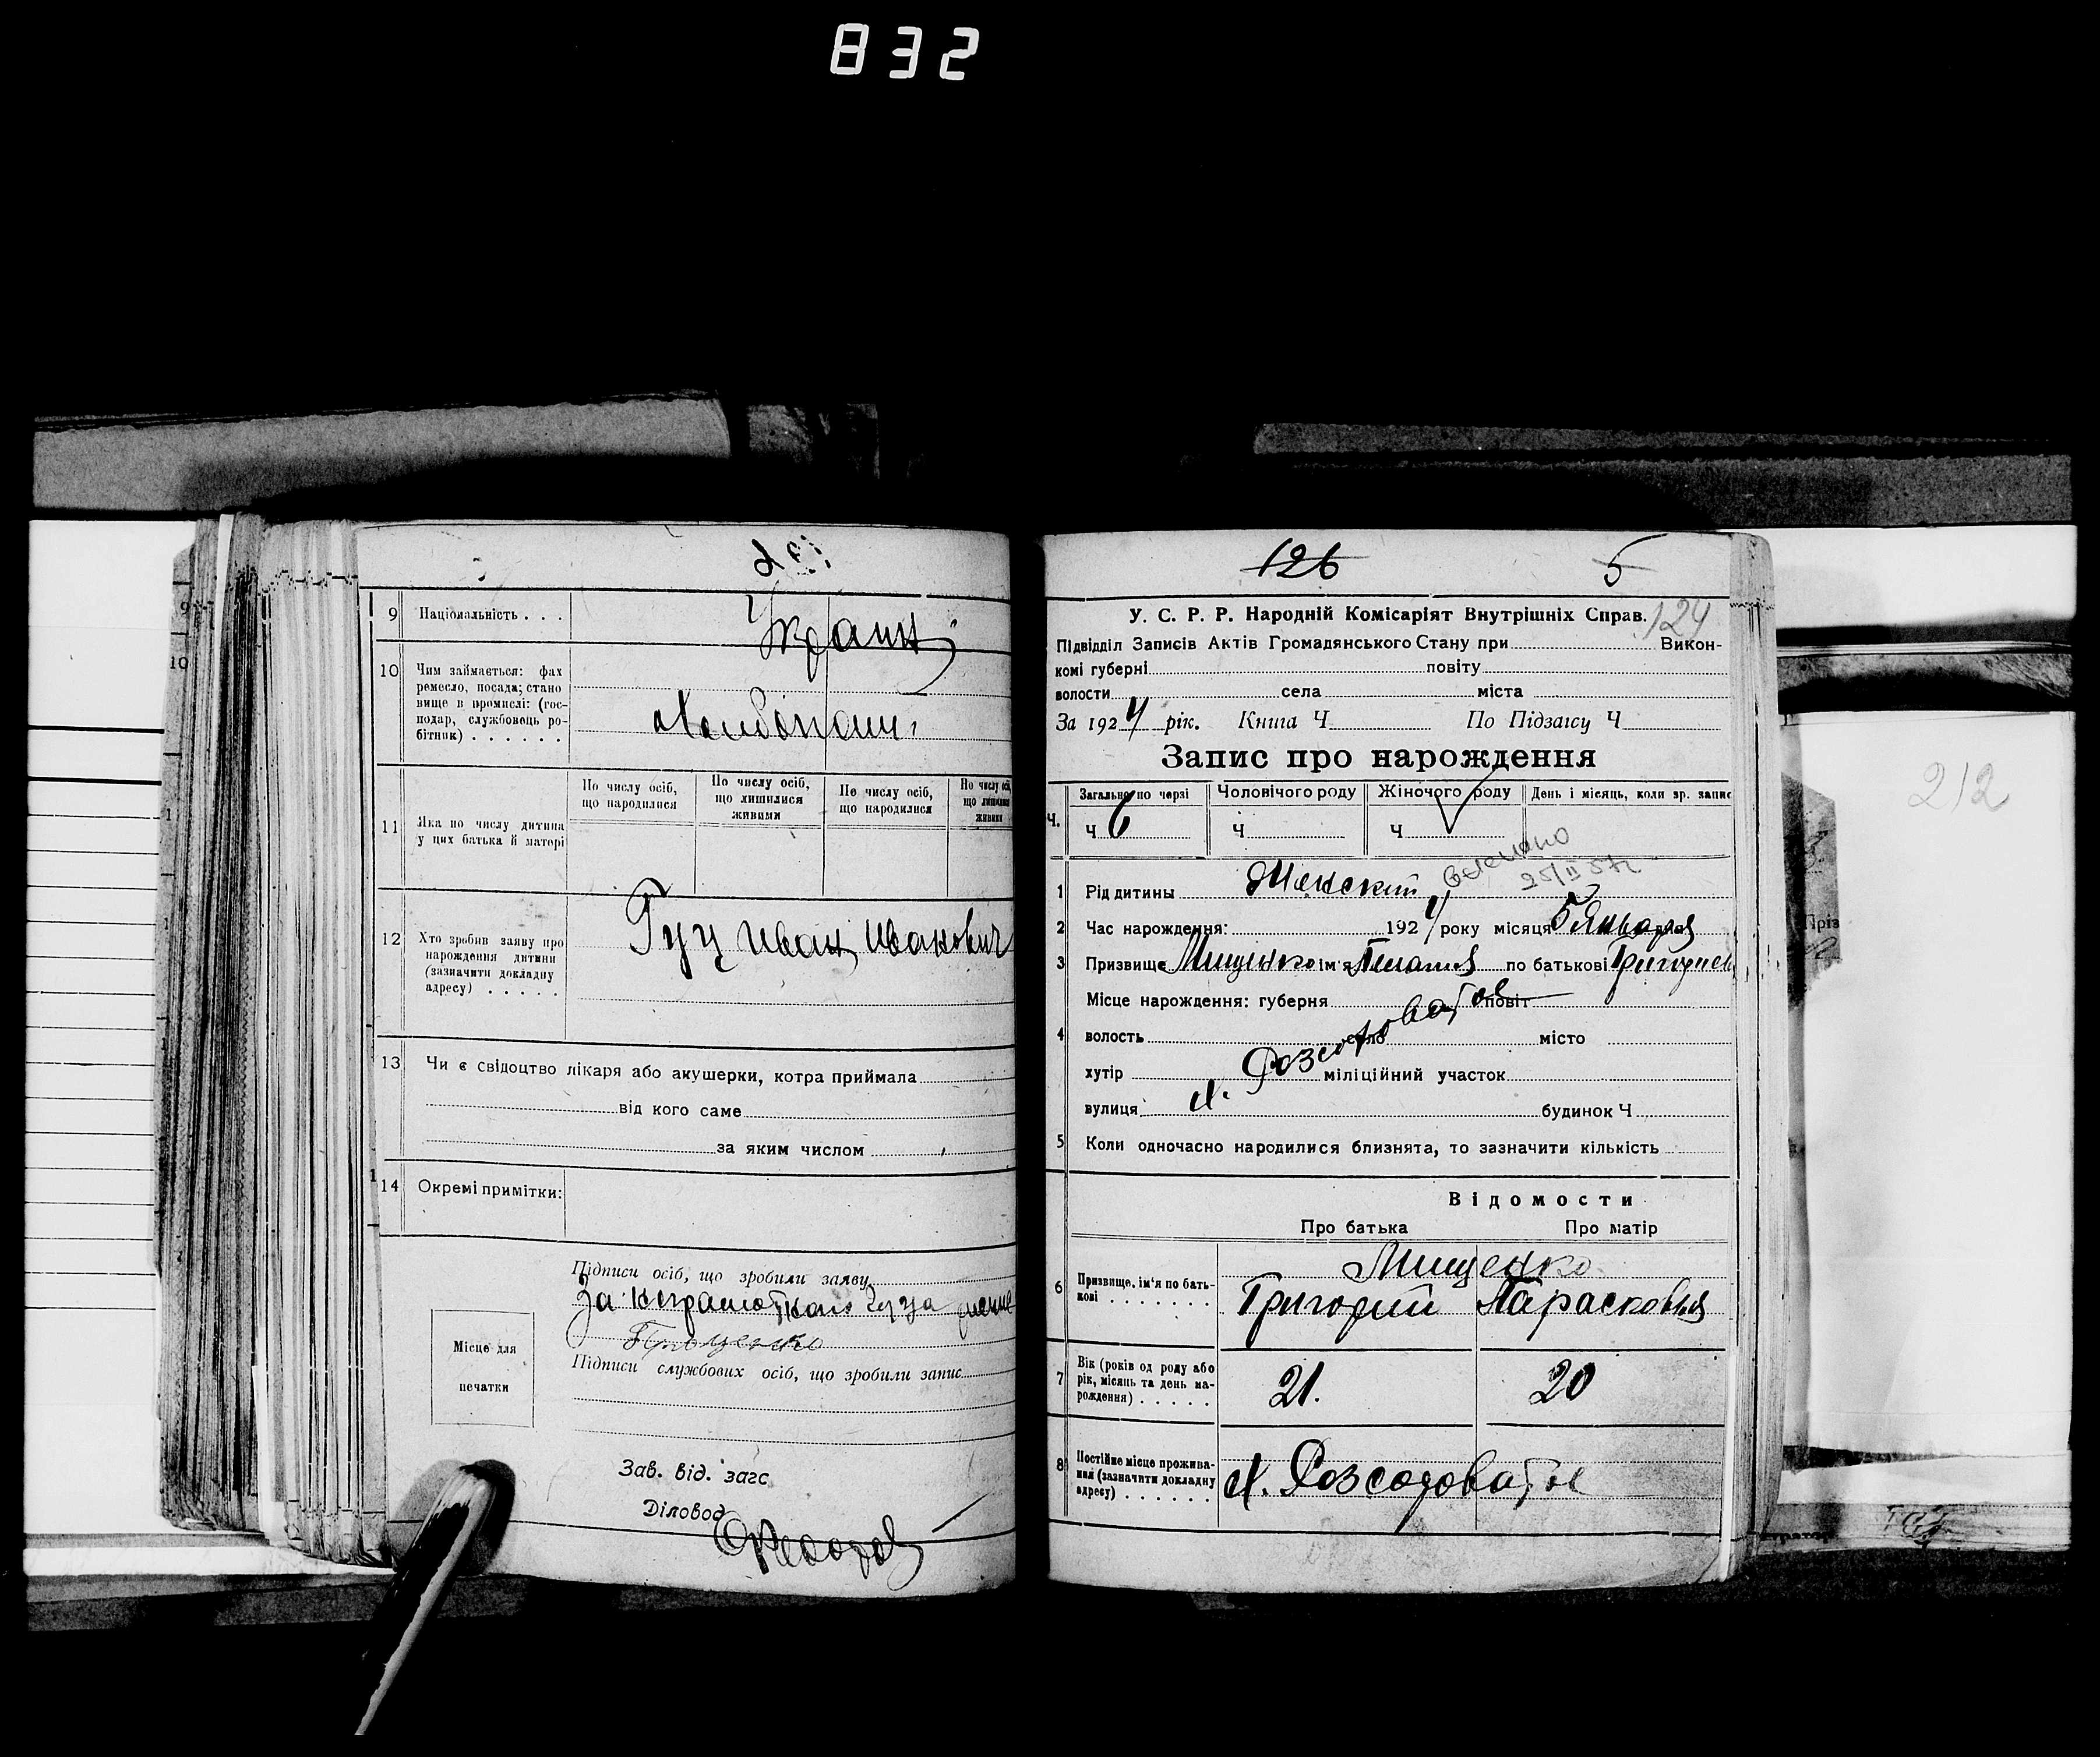 832
9 Національність . . . Украин
10 Чим займається: фах
ремесло, посада; стано
вище в промислі: (гос-
подар, службовець ро-
бітник) . . . . . .
11 Яка по числу дитина
у цих батька й матері
По числу осіб,
що народилися
По числу осіб,
що лишилися
живими
По числу осіб,
що народилися
По числу осіб
що лишилися
живими
12 Хто зробив заяву про
нарождення дитини
(зазначити докладну
адресу) . . . . .
Гуц Иван Иванович
13 Чи є свідоцтво лікаря або акушерки, котра приймала
від кого саме
за яким числом
14 Окремі примітки:
Підписи осіб, що зробили заяву
Проценко
Місце для
печатки
Підписи службових осіб, що зробили запис
Зав. від. загс
Діловод
126 5
124
У. С. Р. Р. Народній Комісаріят Внутрішніх Справ.
Підвідділ Записів Актів Громадянського Стану при Викон-
комі губерні повіту
волости села міста
За 1924 рік. Книга Ч По Підзагсу Ч
Запис про нарождення
Ч. Загально по черзі Чоловічого роду Жіночого роду День і місяць, коли зр. запис
Ч 6 Ч Ч
1 Рід дитини Женский
2 Час нарождення: 1924 року місяця 5 Января
3 Призвище Мищенко ім'я Пелагия по батькові Григориев
Місце нарождення: губерня повіт
4 волость село місто
хутір міліційний участок
х. Розсоховатое
вулиця будинок Ч
5 Коли одночасно народилися близнята, то зазначити кількість
Відомости
Про батька Про матір
6 Призвище, ім'я по бать-
кові . . . . . . .
Мищенко
Григорий Парасковья
7 Вік (років од роду або
рік, місяць та день на-
рождення) . . . . .
21. 20
8 Постійне місце прожива-
ння (зазначити докладну
адресу) . . . . . .
х. Розсоховатое
212